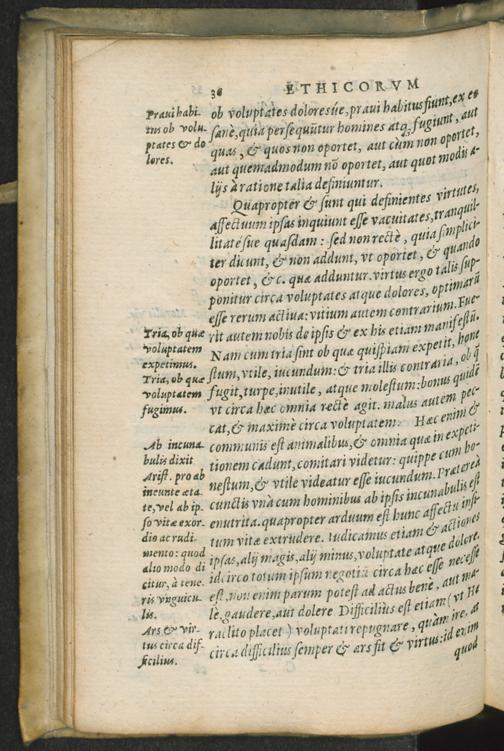 38 ETHICORVM
Praui habi-
tus ob volu-
ptates & do
lores.
ob voluptates doloresúe, praui habitus fiunt, ex es
sanè, quia persequũtur homines atq; fugiunt, aut
quas, & quos non oportet, aut cùm non oportet,
aut quemadmodum nõ oportet, aut quot modis a-
lijs à ratione talia definiuntur.
Quapropter & sunt qui definientes virtutes,
affectuum ipsas inquiunt esse vacuitates, tranquil-
litatesue quasdam: sed non rectè, quia simplici-
ter dicunt, & non addunt, vt oportet, & quando
oportet, & c. quæ adduntur. virtus ergo talis sup-
ponitur circa voluptates atque dolores, optimarũ
esse rerum actiua: vitium autem contrarium. Fue-
rit autem nobis de ipsis & ex his etiam manifestũ.
Nam cum tria sint ob quæ quispiam expetit, hone
stum, vtile, iucundum: & tria illis contraria, ob q̃
fugit, turpe, inutile, atque molestum: bonus quidẽ
vt circa hæc omnia rectè agit. malus autem pec-
cat, & maximè circa voluptatem. Hæc enim &
communis est animalibus, & omnia quæ in expeti-
tionem cadunt, comitari videtur: quippe cum ho-
nestum, & vtile videatur esse iucundum. Præterea
cunctis vnà cum hominibus ab ipsis incunabulis est
enutrita. quapropter arduum est hunc affectũ insi-
tum vitæ extrudere. Iudicamus etiam & actiones
ipsas, alij magis, alij minus, voluptate atque dolore.
idcirco totum ipsum negotiũ circa hæc esse necesse
est. non enim parum potest ad actus benè, aut ma-
lè, gaudere, aut dolere Difficilius est etiam (vt He
raclito placet) voluptati repugnare, quàm iræ. at
circa difficilius semper & ars fit & virtus: id enim
quod
Tria, ob quæ
voluptatem
expetimus.
Tria, ob quæ
voluptatem
fugimus.
Ab incuna
bulis dixit
Arist. pro ab
ineunte æta
te, vel ab ip-
so vitæ exor
dio ac rudi-
mento: quod
alio modo di
citur, à tene-
ris vnguicu-
lis.
Ars & vir-
tus circa dif-
ficilius.